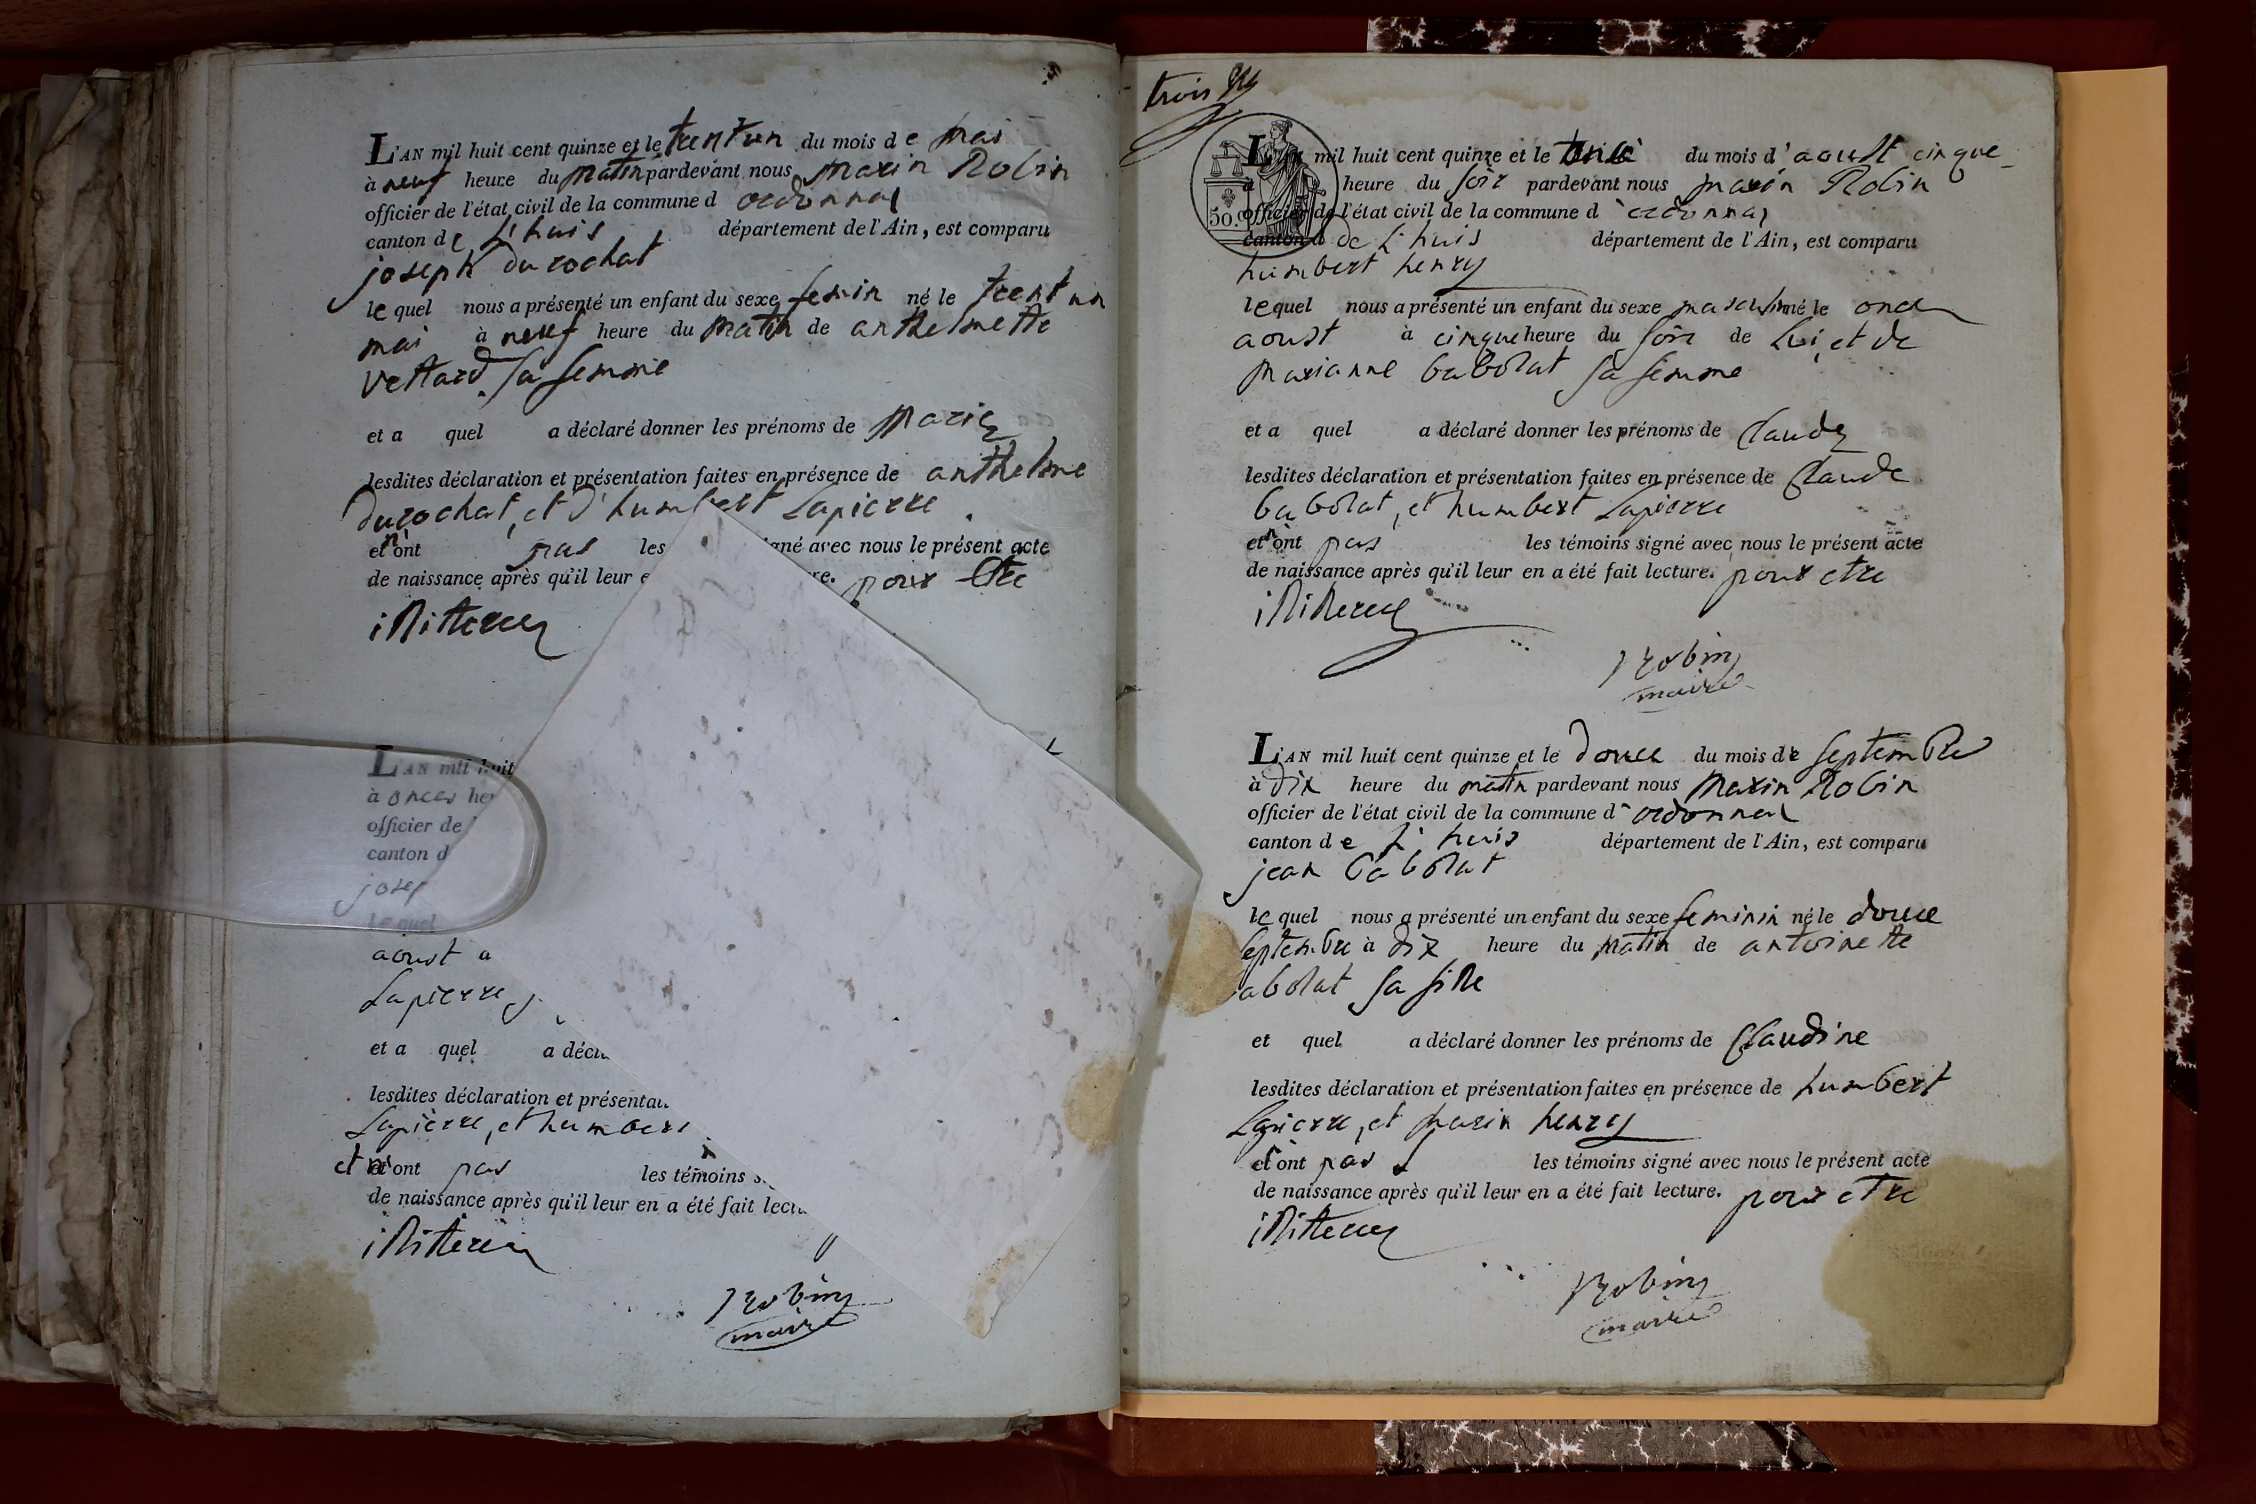 L'AN mil huit cent quinze et le trent un du mois de mai
à neuf heure du matin pardevant nous marin Robin
officier de l'état civil de la commune d ordonnas
canton de L'huis département de l'Ain, est comparu
joseph durochat
lequel nous a présenté un enfant du sexe femin né le trent un
mai à neuf heure du matin de anthelmette
vettard sa femme
et a quel a déclaré donner les prénoms de marie
lesdites déclaration et présentation faites en présence de anthelme
durochat, et d'humbert Lapierre
et n'ont pas les signé avec nous le présent acte
de naissance après qu'il leur pour etre
illiteres
L'AN mil huit
à onces
officier de
canton d
josep
le quel
aoust a
Lapierre
et a quel a
lesdites déclaration et
Lapierre, et humbert
et n'ont pas les témoins
de naissance après qu'il leur en a été fait
illiteres
Robin
maire
trois
50.c
L'AN mil huit cent quinze et le onze du mois d'aoust cinque
à heure du soir pardevant nous marin Robin
officier de l'état civil de la commune d'ordonnas
canton d de L'huis département de l'Ain, est comparu
humbert henry
lequel nous a présenté un enfant du sexe masculin né le once
aoust à cinque heure du soir de Lui, et de
marianne babolat sa femme
et a quel a déclaré donner les prénoms de Claude
lesdites déclaration et présentation faites en présence de Claude
babolat, et humbert Lapierre
et n'ont pas les témoins signé avec nous le présent acte
de naissance après qu'il leur en a été fait lecture. pour etre
illiteres
Robin
maire
L'AN mil huit cent quinze et le douce du mois de septembre
à dix heure du matin pardevant nous marin Robin
officier de l'état civil de la commune d'ordonnas
canton de L'huis département de l'Ain, est comparu
jean babolat
lequel nous a présenté un enfant du sexe feminin né le douce
septembre à dix heure du matin de antoinette
abolat sa fille
et quel a déclaré donner les prénoms de Claudine
lesdites déclaration et présentation faites en présence de humbert
Lapierre, et marin henry
et n'ont pas les témoins signé avec nous le présent acte
de naissance après qu'il leur en a été fait lecture. pour etre
illiteres
Robin
maire